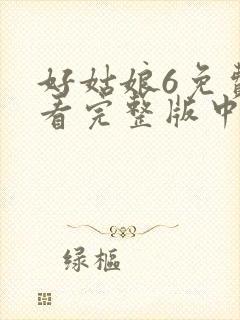 好姑娘6免费
看完整版中
绿樞